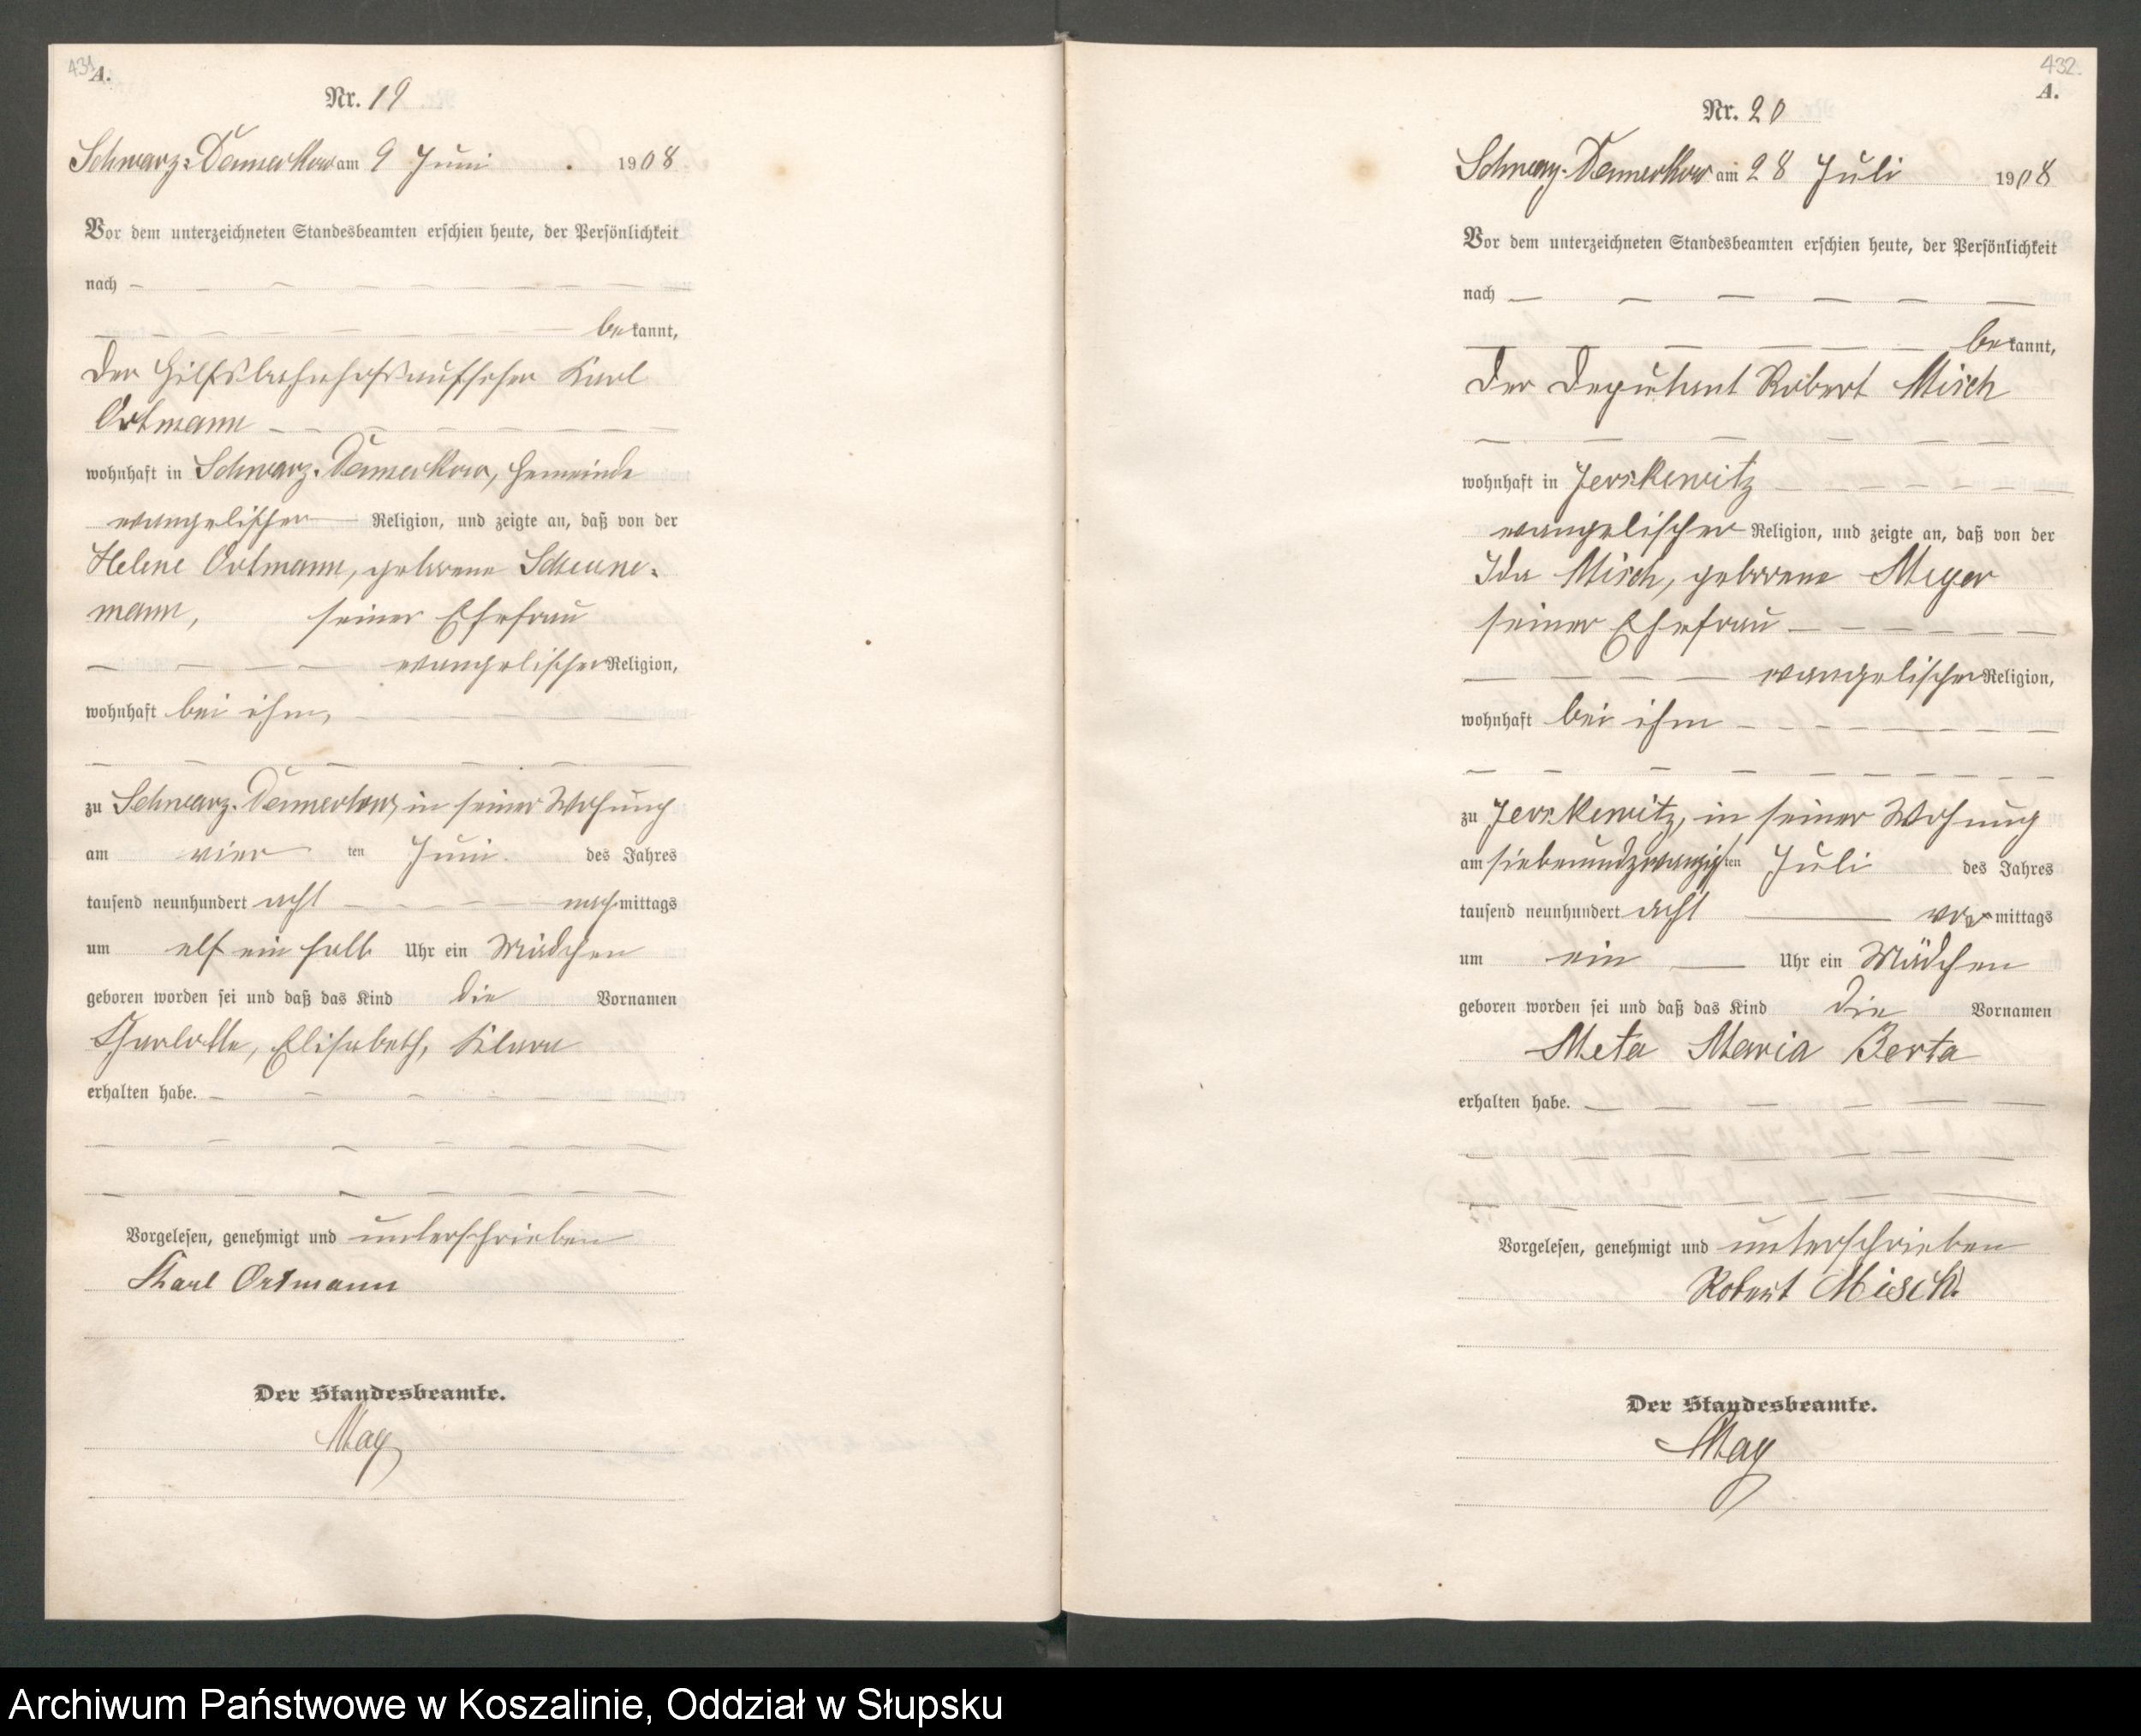 431
A.
Nr. 19
Schwarz-Damerkow am 9 Juni 1908
Vor dem unterzeichneten Standesbeamten erschien heute, der Persönlichkeit
nach
bekannt,
der Hilfsbahnhofsaufseher Karl
Ortmann
wohnhaft in Schwarz-Damerkow, Gemeinde
evangelischer Religion, und zeigte an, daß von der
Helene Ortmann, geborene Scheune-
mann, seiner Ehefrau
evangelischer Religion,
wohnhaft bei ihm,
zu Schwarz-Damerkow, in seiner Wohnung
am vier ten Juni des Jahres
tausend neunhundert acht nachmittags
um elf ein halb Uhr ein Mädchen
geboren worden sei und daß das Kind die Vornamen
Charlotte, Elisabeth, Klara
erhalten habe.
Vorgelesen, genehmigt und unterschrieben
Karl Ortmann
Der Standesbeamte.
May
432.
A.
Nr. 20
Schwarz-Damerkow am 28 Juli 1908
Vor dem unterzeichneten Standesbeamten erschien heute, der Persönlichkeit
nach
bekannt,
der Deputant Robert Misch
wohnhaft in Jerskewitz
evangelischer Religion, und zeigte an, daß von der
Ida Misch, geborene Meyer
seiner Ehefrau
evangelischer Religion,
wohnhaft bei ihm
zu Jerskewitz, in seiner Wohnung
am siebenundzwanzigsten Juli des Jahres
tausend neunhundert acht vormittags
um ein Uhr ein Mädchen
geboren worden sei und daß das Kind die Vornamen
Meta Maria Berta
erhalten habe.
Vorgelesen, genehmigt und unterschrieben
Robert Misch.
Der Standesbeamte.
May
Archiwum Państwowe w Koszalinie, Oddział w Słupsku